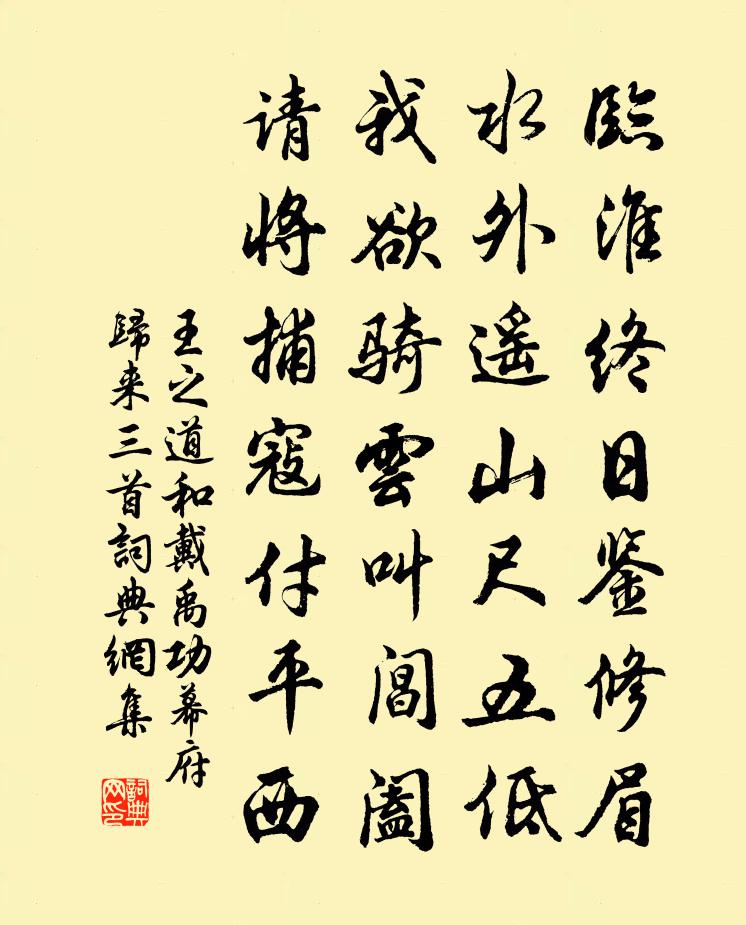 臨淮终日鉴修眉
水外遥山尺五低
我欲騎雲叫閶阖
请将捕寇付平西
王之道和戴禹功幕府
歸来三首詞典網集
詞典网印